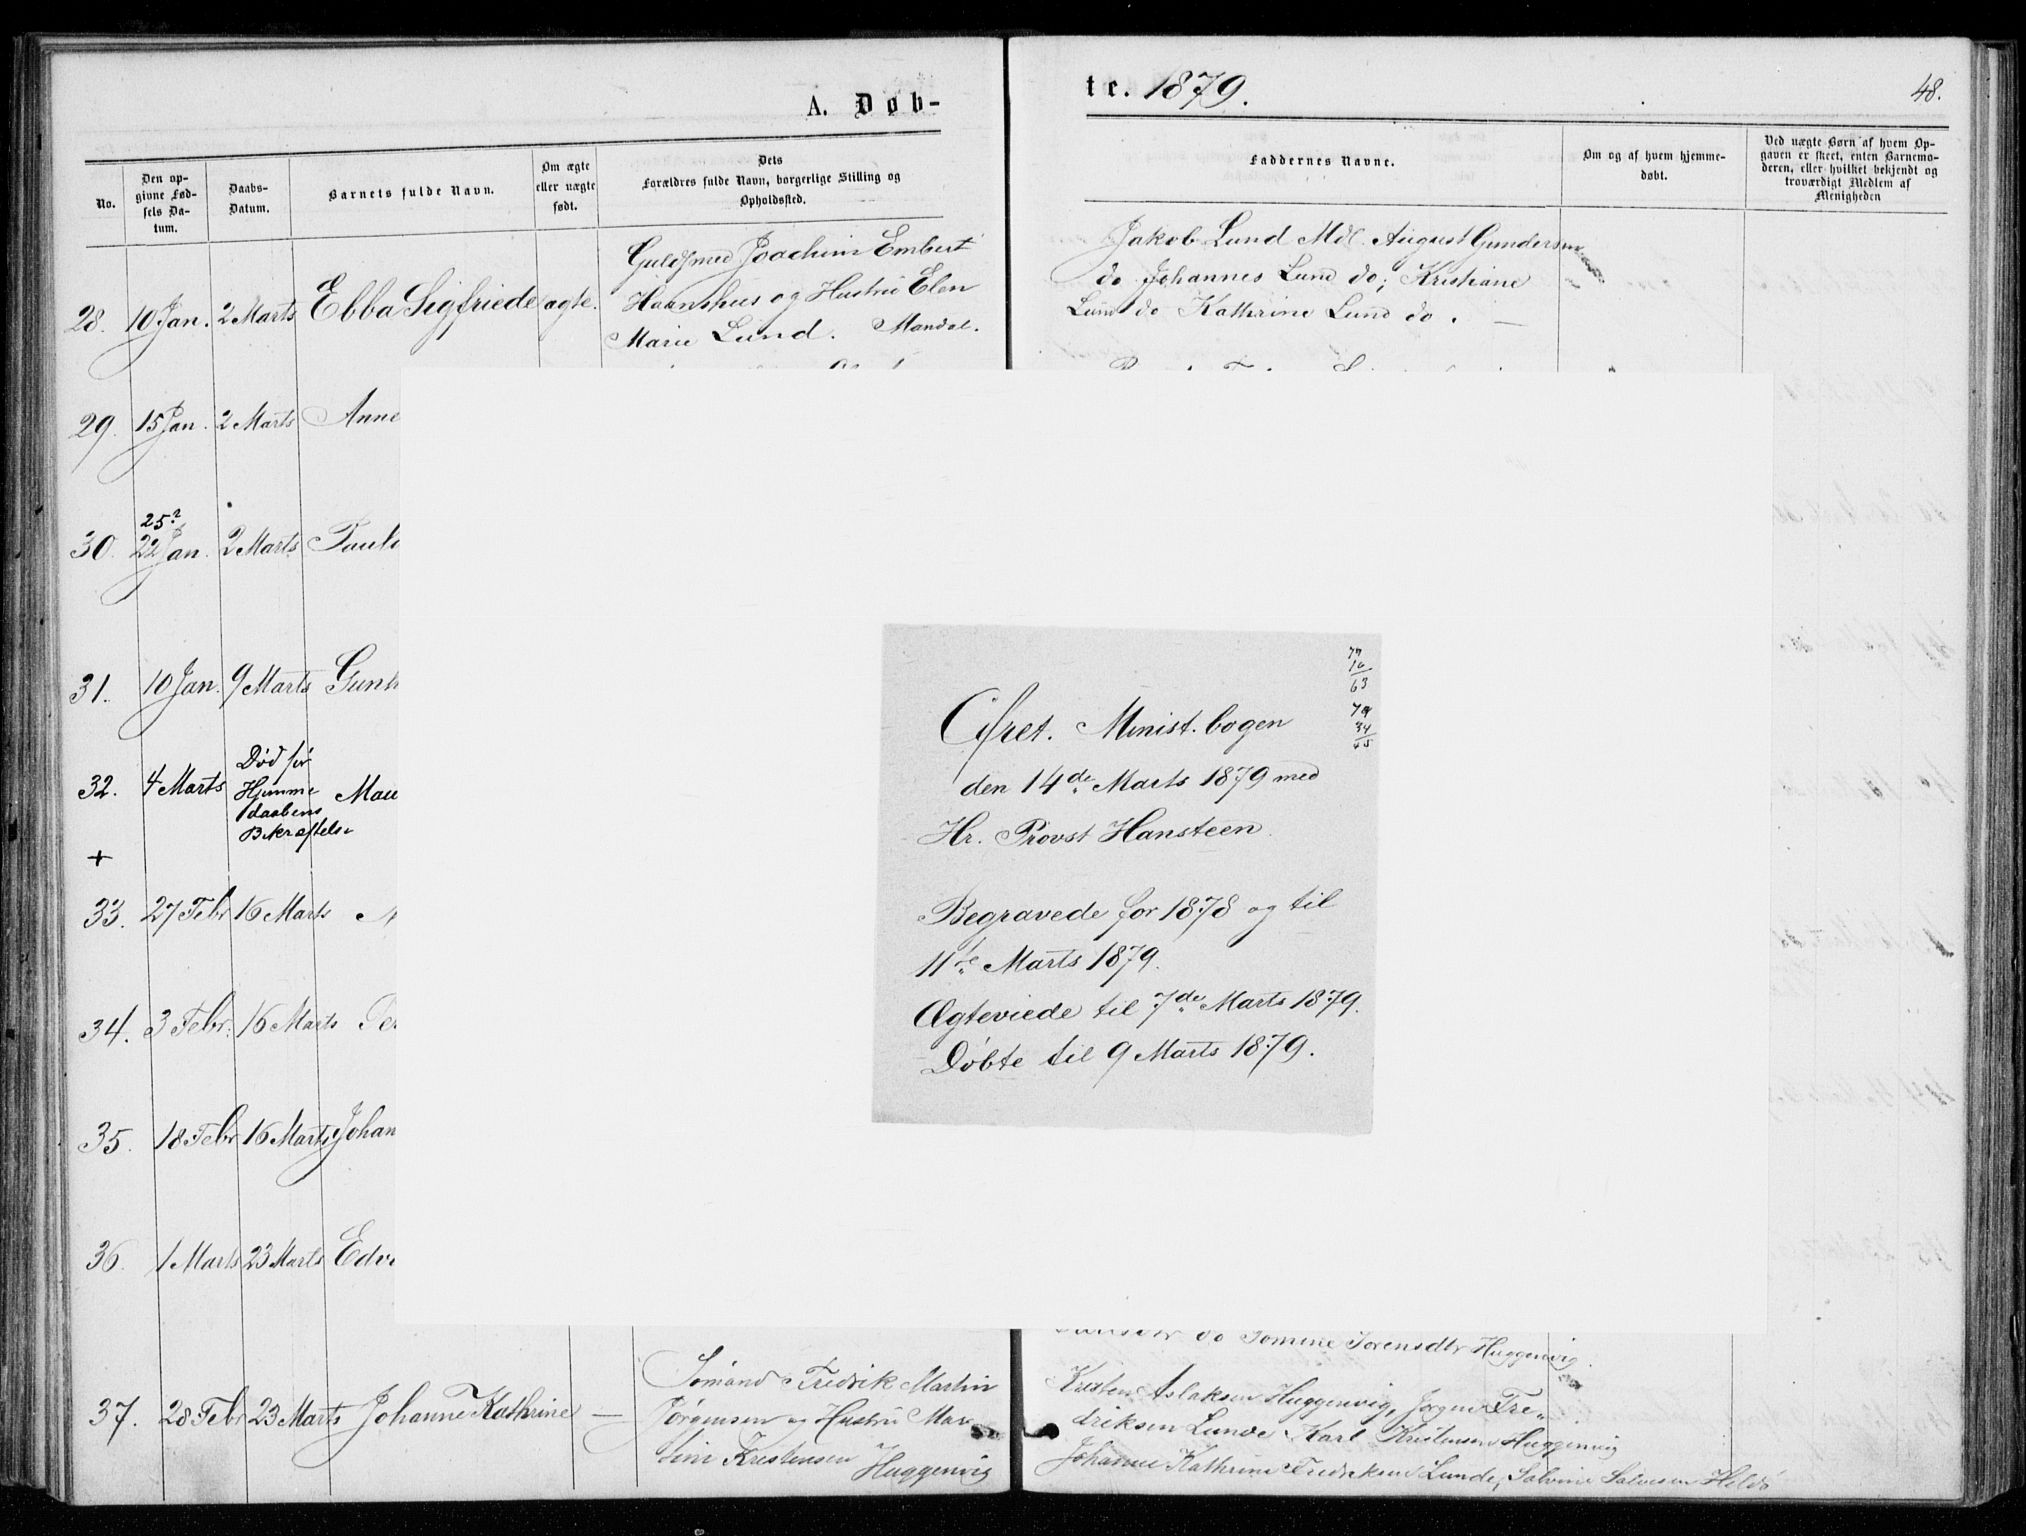 A. Døb-
te. 1879.
48.
No.
Den op-
givne Fød-
sels Da-
tum.
Daabs-
Datum.
Barnets fulde Navn.
Om ægte
eller uægte
født.
Dets
Forældres fulde Navn, borgerlige Stilling og
Opholdssted.
Faddernes Navne.
Om og af hvem hjemme-
døbt.
Ved uægte Børn af hvem Op-
gaven er skeet, enten Barnemo-
deren, eller hvilket bekjendt og
troværdigt Medlem af
Menigheden
28. 10 Jan. 2 Marts Ebba Sigfriede ægte.
Guldsmed Joachim Embert
Haanshus og Hustru Elen
Marie Lund. Mandal.
Jakob Lund Mdl. August Gundersen
do Johannes Lund do; Kristiane
Lund do Kathrine Lund do.
29. 15 Jan. 2 Marts Anne
25?
30. 22 Jan. 2 Marts
31. 10 Jan. 9 Marts
32. 4 Marts
Død før
Hjemme
daabens
Bekræftelse
+
33. 27 Febr 16 Marts
34. 3 Febr. 16 Marts
35. 18 Febr 16 Marts Johan
36. 1 Marts 23 Marts
Cfret. Minist. bogen
den 14de Marts 1879 med
Hr. Provst Hansteen.
Begravede for 1878 og til
11te Marts 1879.
Ægteviede til 7de Marts 1879.
Døbte til 9 Marts 1879.
do Tomine Sørensdtr Huggenvig.
37. 28 Febr 23 Marts Johanne Kathrine —
Sømand Fredrik Martin
Jørgensen og Hustru Mar
Huggenvig
Kristen Aslaksen Huggenvig, Jørgen Fre„
driksen Lunde Karl Kristensen Huggenvig
Johanne Kathrine Fredriksen Lunde,